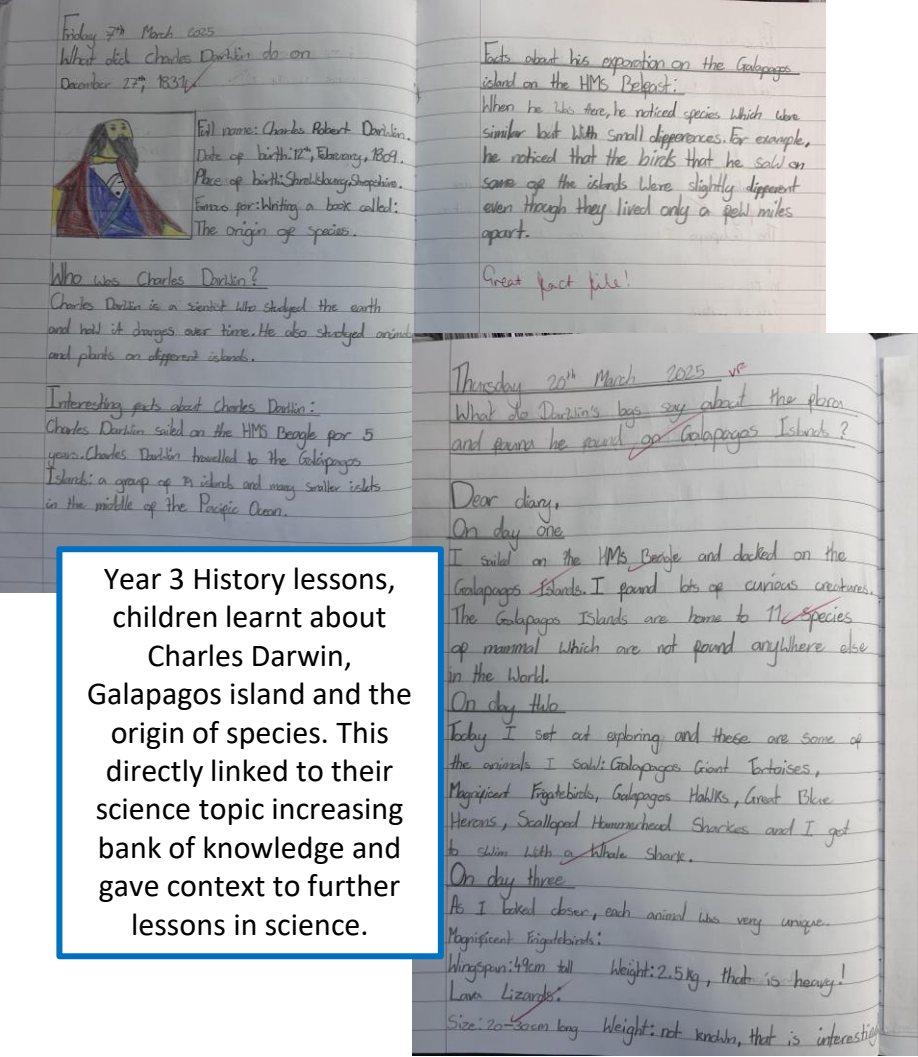 Friday 7th March 2025
What did Charles Darwin do on
December 27th, 1831
Full name: Charles Robert Darwin.
Date of birth: 12th, February, 1809.
Place of birth: Shrewsbury, Shropshire.
Famous for: Writing a book called:
The origin of species.
Who was Charles Darwin?
Charles Darwin is a scientist who studyed the earth
and how it changes over time. He also studyed animals
and plants on different islands.
Interesting facts about Charles Darwin:
Charles Darwin sailed on the HMS Beagle for 5
years. Charles Darwin travelled to the Galápagos
Islands: a group of 19 islands and many smaller islets
in the middle of the Pacific Ocean.
Facts about his exporation on the Galapagos
island on the HMS Belfast:
When he was there, he noticed species which were
similar but with small differences. For example,
he noticed that the birds that he saw on
some of the islands were slightly different
even though they lived only a few miles
apart.
Great fact file!
Thursday 20th March 2025 VF
What do Darwin's logs say about the flora
and fauna he found on Galapagos Islands?
Dear diary,
On day one
I sailed on the HMS Beagle and docked on the
Galapagos Islands. I found lots of curious creatures.
The Galapagos Islands are home to 11 species
of mammal which are not found anywhere else
in the World.
On day two
Today I set out exploring and these are some of
the animals I saw: Galapagos Giant Tortoises,
Magnificent Frigatebirds, Galapagos Hawks, Great Blue
Herons, Scalloped Hammerhead Sharkes and I got
to swim with a Whale Shark.
On day three
As I looked closer, each animal was very unique.
Magnificent Frigatebirds:
Wingspan: 49cm tall Weight: 2.5kg, that is heavy!
Lava Lizards:
Size: 20-30cm long Weight: not known, that is interesting
Year 3 History lessons,
children learnt about
Charles Darwin,
Galapagos island and the
origin of species. This
directly linked to their
science topic increasing
bank of knowledge and
gave context to further
lessons in science.